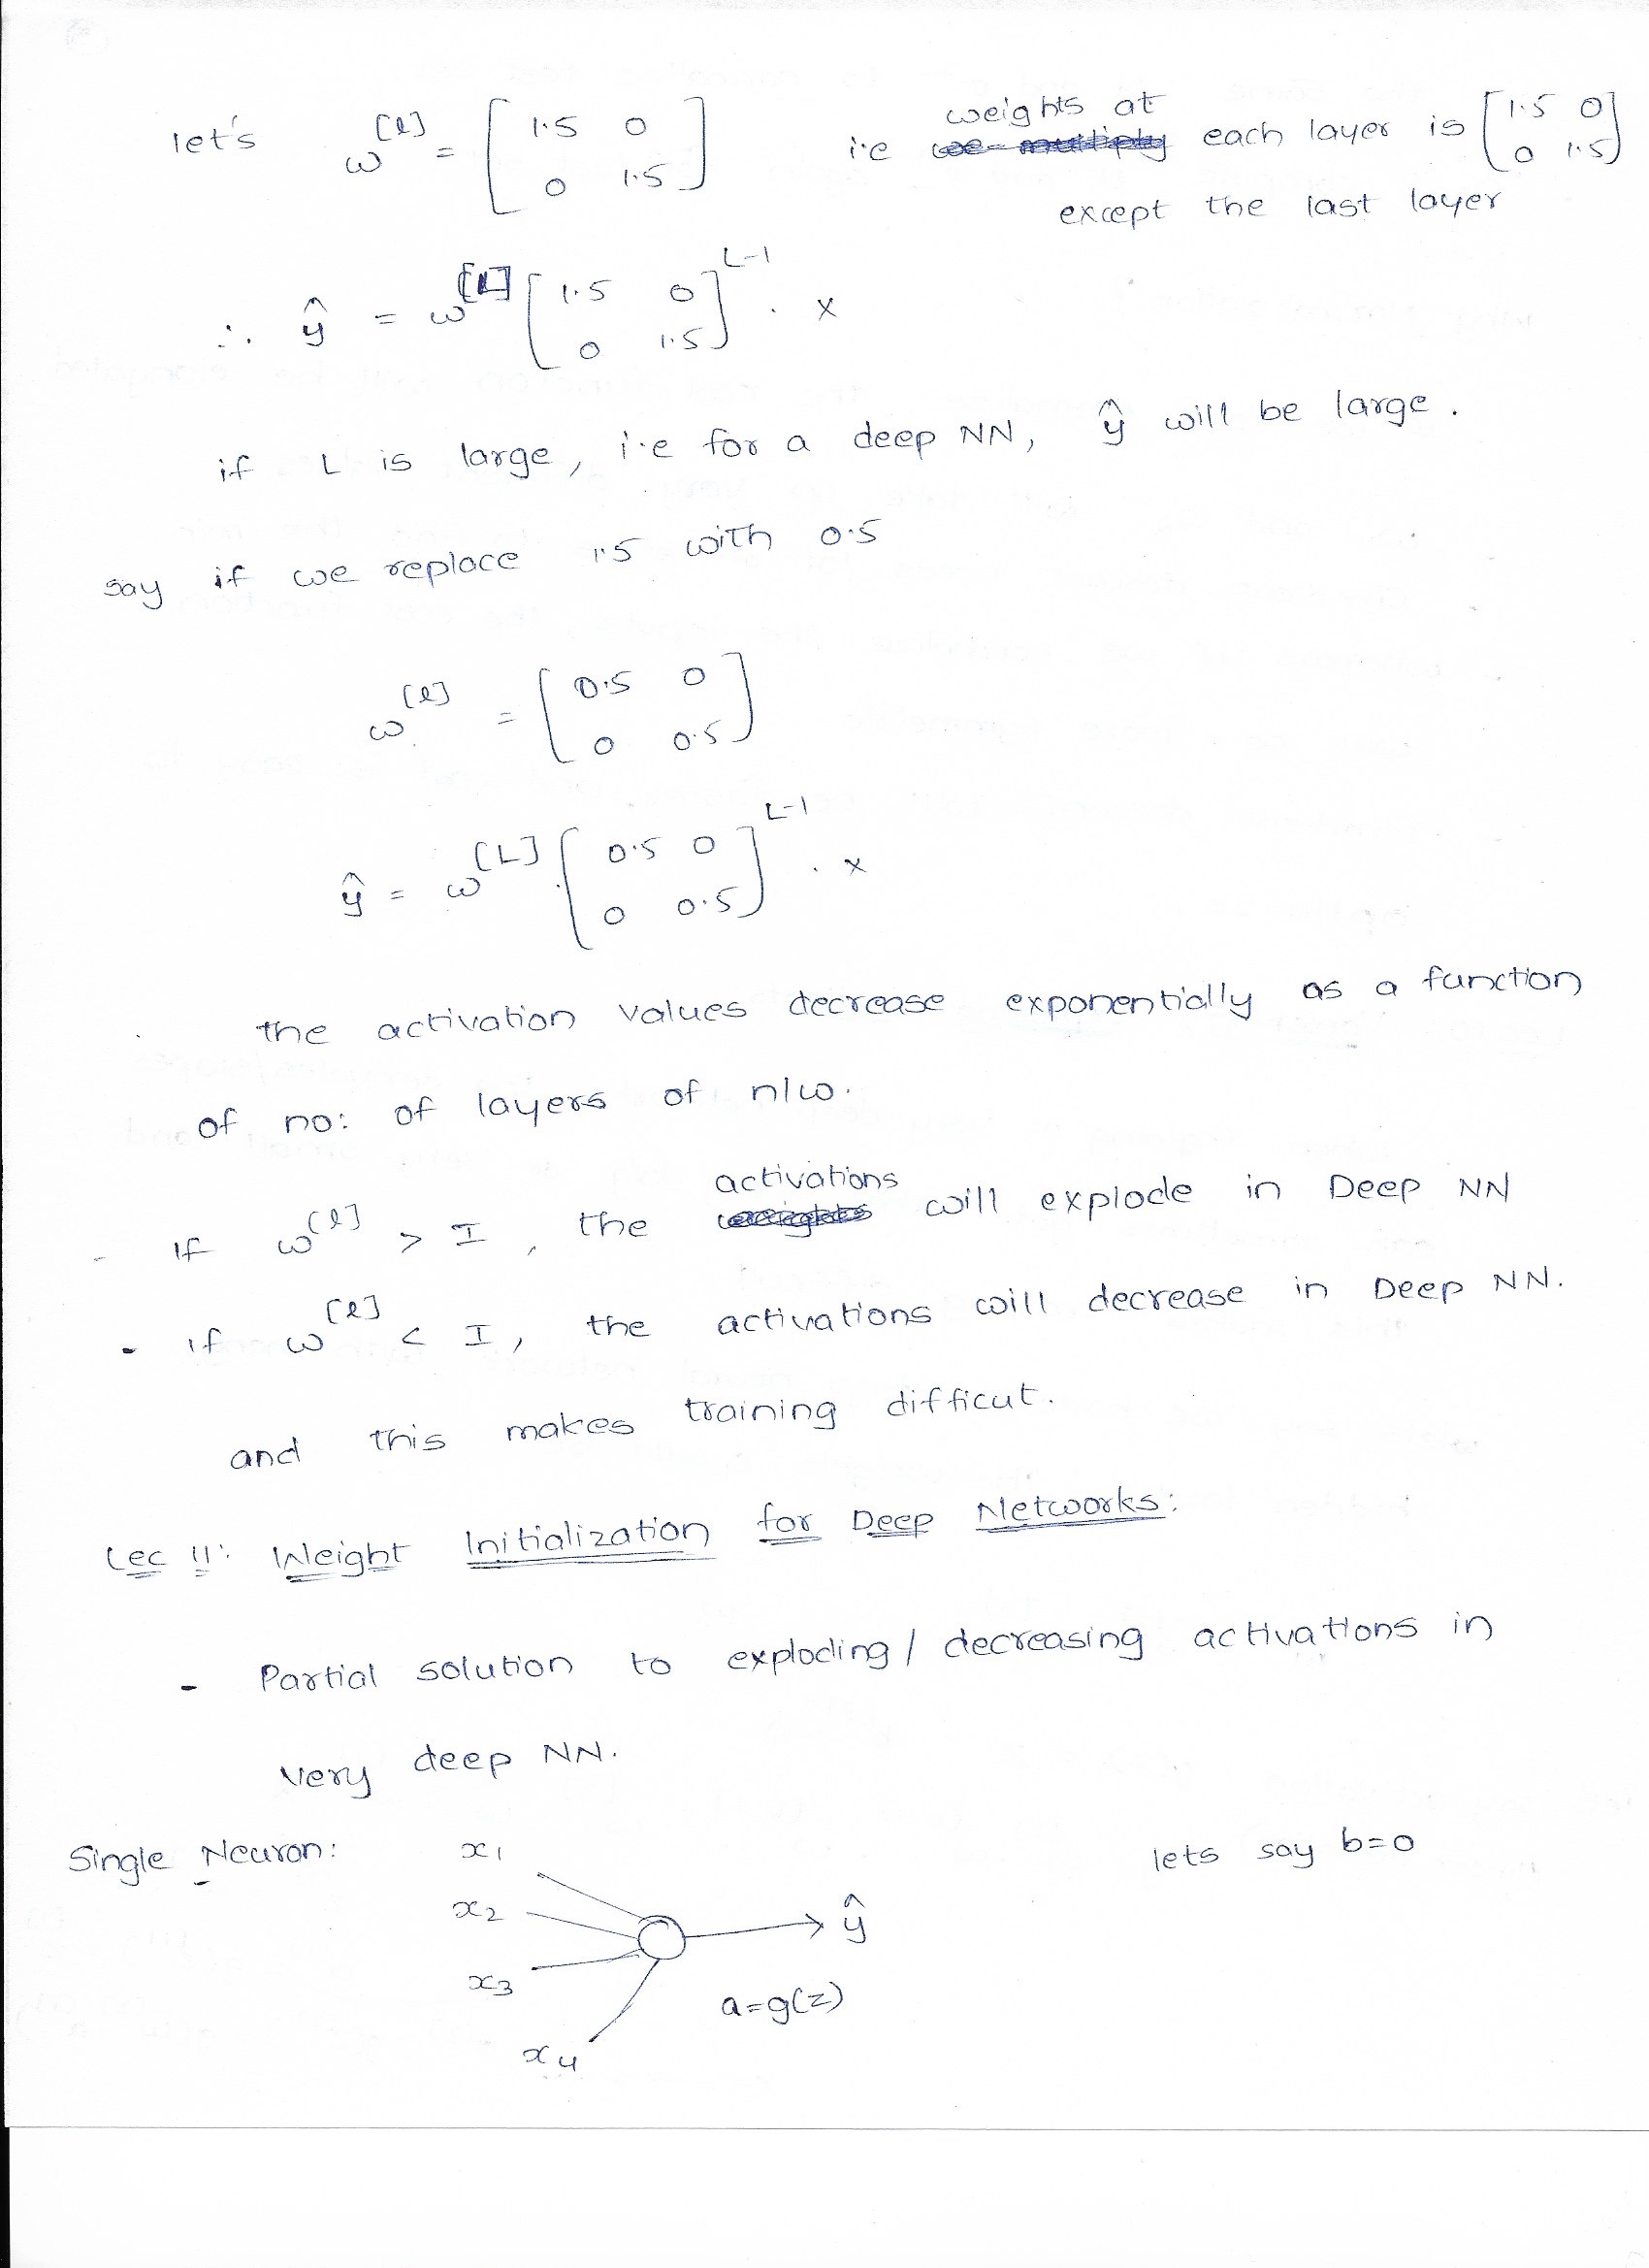 let's ω[l] = [1.5 0; 0 1.5] i.e weights at each layer is [1.5 0; 0 1.5]
except the last layer
∴ ŷ = ω[L] [1.5 0; 0 1.5]^L-1 . x
if L is large, i.e for a deep NN, ŷ will be large.
say if we replace 1.5 with 0.5
ω[l] = [0.5 0; 0 0.5]
ŷ = ω[L] [0.5 0; 0 0.5]^L-1 . x
the activation values decrease exponentially as a function
of no: of layers of n/w.
- If ω[l] > I, the activations will explode in Deep NN
- if ω[l] < I, the activations will decrease in Deep NN.
and this makes training difficut.
Lec 11: Weight Initialization for Deep Networks:
- Partial solution to exploding / decreasing activations in
very deep NN.
Single Neuron: x1 lets say b=0
x2 ŷ
x3 a=g(z)
x4